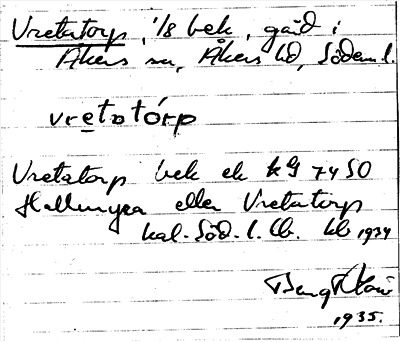 Vretatorp, 1/8 bek, gård i
Åkers sn, Åkers hd, Söderm. l.
vretatórp
Vretatorp bek ek kg 7450
eller Vretatorp
kal. Söd. l. kb 1934
Bengt
1935.